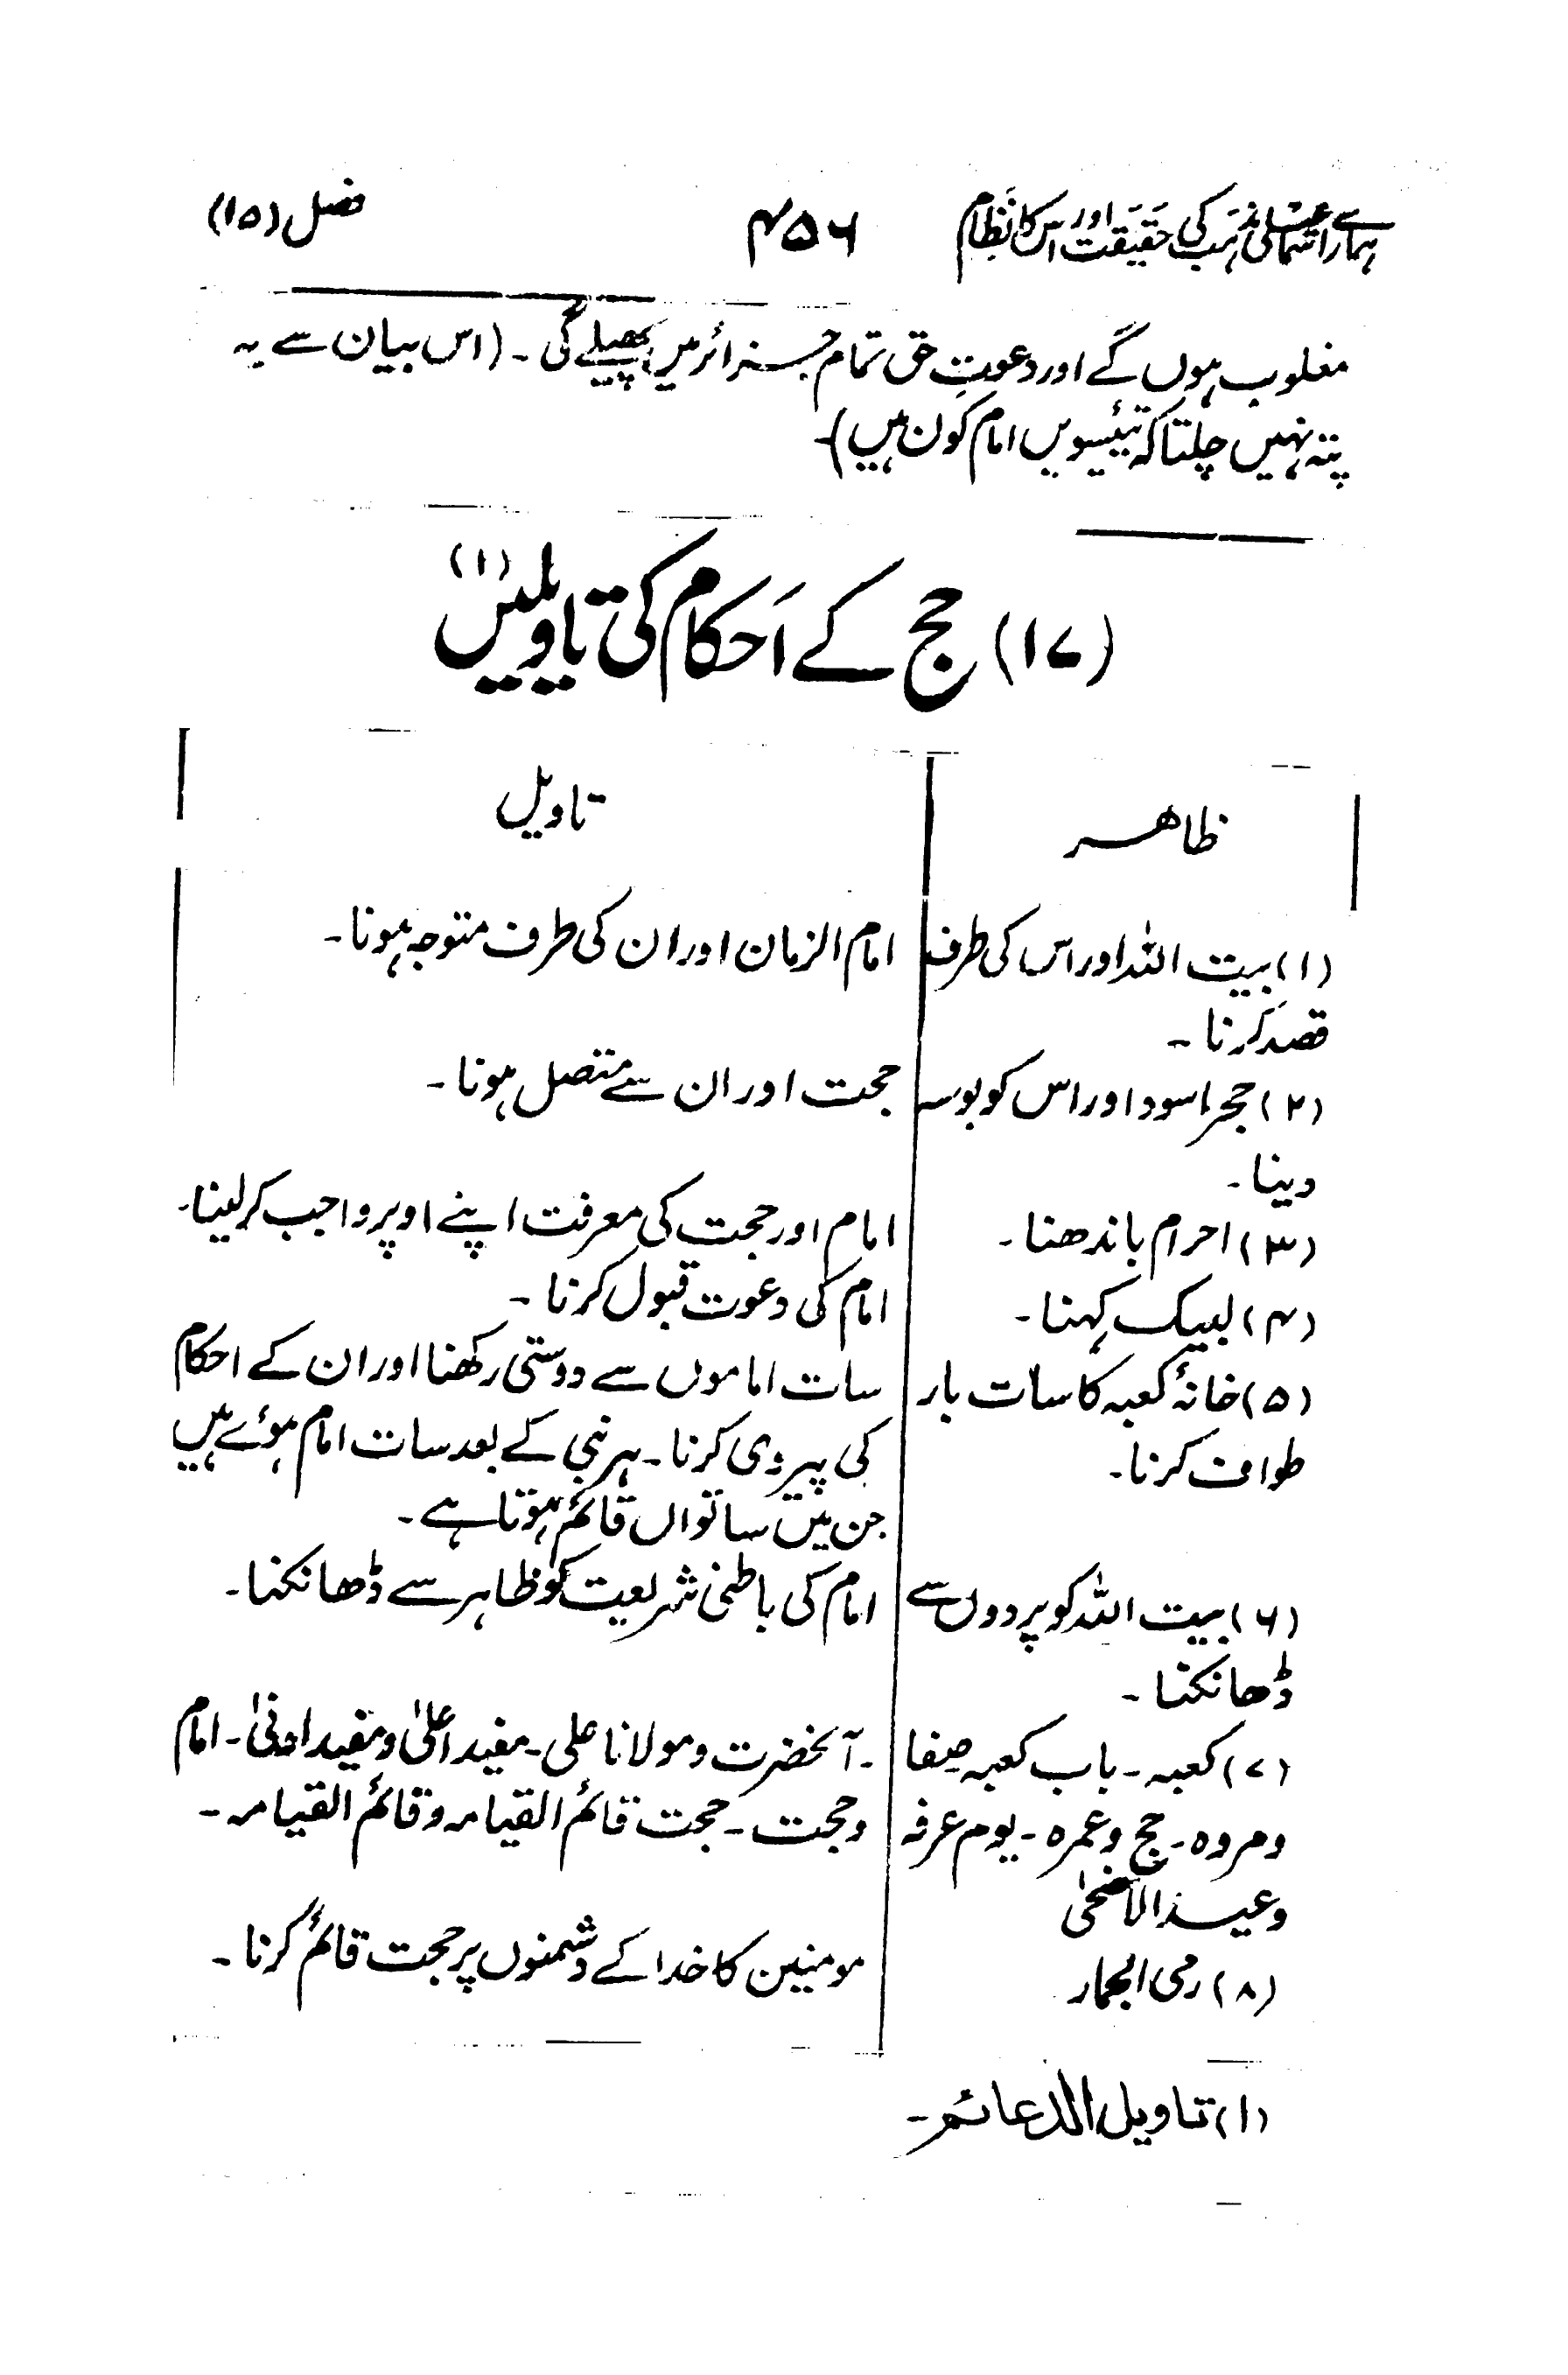 ہمارے اسماعیلی مذہب کی حقیقت اور اس کا نظام ۴۵۶ فصل (۱۵)
مغلوب ہوں گے اور دعوتِ حق تمام جزائر میں پھیلے گی ۔ (اس بیان سے یہ
پتہ نہیں چلتا کہ تیئسویں امام کون ہیں)۔
(۱۷) حج کے اَحکام کی تاویلیں (۱)
ظاہر
تاویل
(۱) بیت اللہ اور اس کی طرف
قصد کرنا ۔
امام الزمان اور ان کی طرف متوجہ ہونا ۔
(۲) حجر اسود اور اس کو بوسہ
دینا ۔
حجت اور ان سے متصل ہونا ۔
(۳) احرام باندھنا ۔
امام اور حجت کی معرفت اپنے اوپر واجب کرلینا ۔
(۴) لبیک کہنا ۔
امام کی دعوت قبول کرنا ۔
(۵) خانۂ کعبہ کا سات بار
طواف کرنا ۔
سات اماموں سے دوستی رکھنا اور ان کے احکام
کی پیروی کرنا ۔ ہر نبی کے بعد سات امام ہوئے ہیں
جن میں ساتواں قائم ہوتا ہے ۔
(۶) بیت اللہ کو پردوں سے
ڈھانکنا ۔
امام کی باطنی شریعت کو ظاہر سے ڈھانکنا ۔
(۷) کعبہ ۔ باب کعبہ صفا
ومروہ ۔ حج وعمرہ ۔ یوم عرفہ
وعید الاضحیٰ
۔ آنحضرت ومولانا علی ۔ مفید اعلیٰ ومفید ادنیٰ ۔ امام
وحجت ۔ حجت قائم القیامہ وقائم القیامہ ۔
(۸) رمی الجمار
مومنین کا خدا کے دشمنوں پر حجت قائم کرنا ۔
(۱) تاویل الدعائم ۔